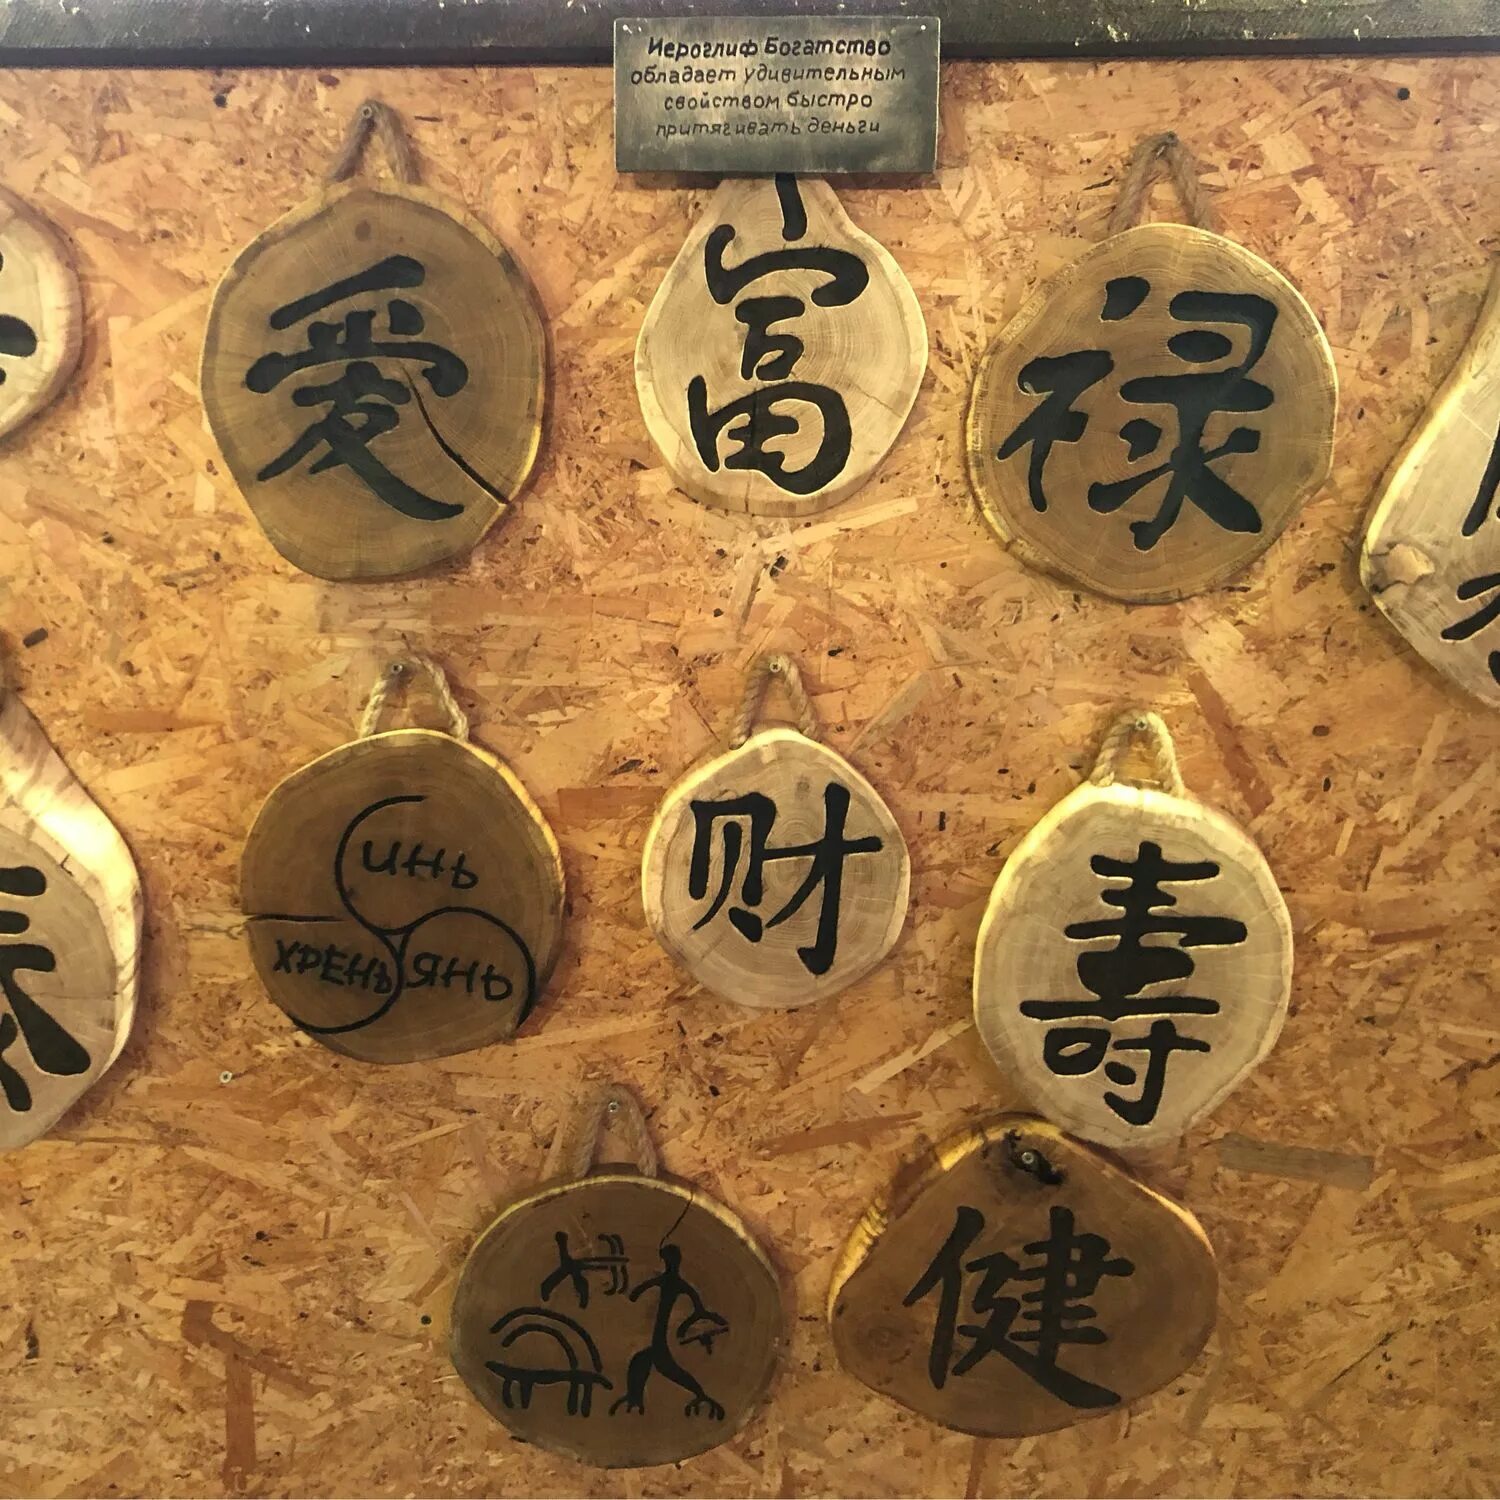 Иероглиф Богатство
обладает удивительным
свойством быстро
притягивать деньги
愛
富
禄
инь
хрень янь
财
壽
泰
健